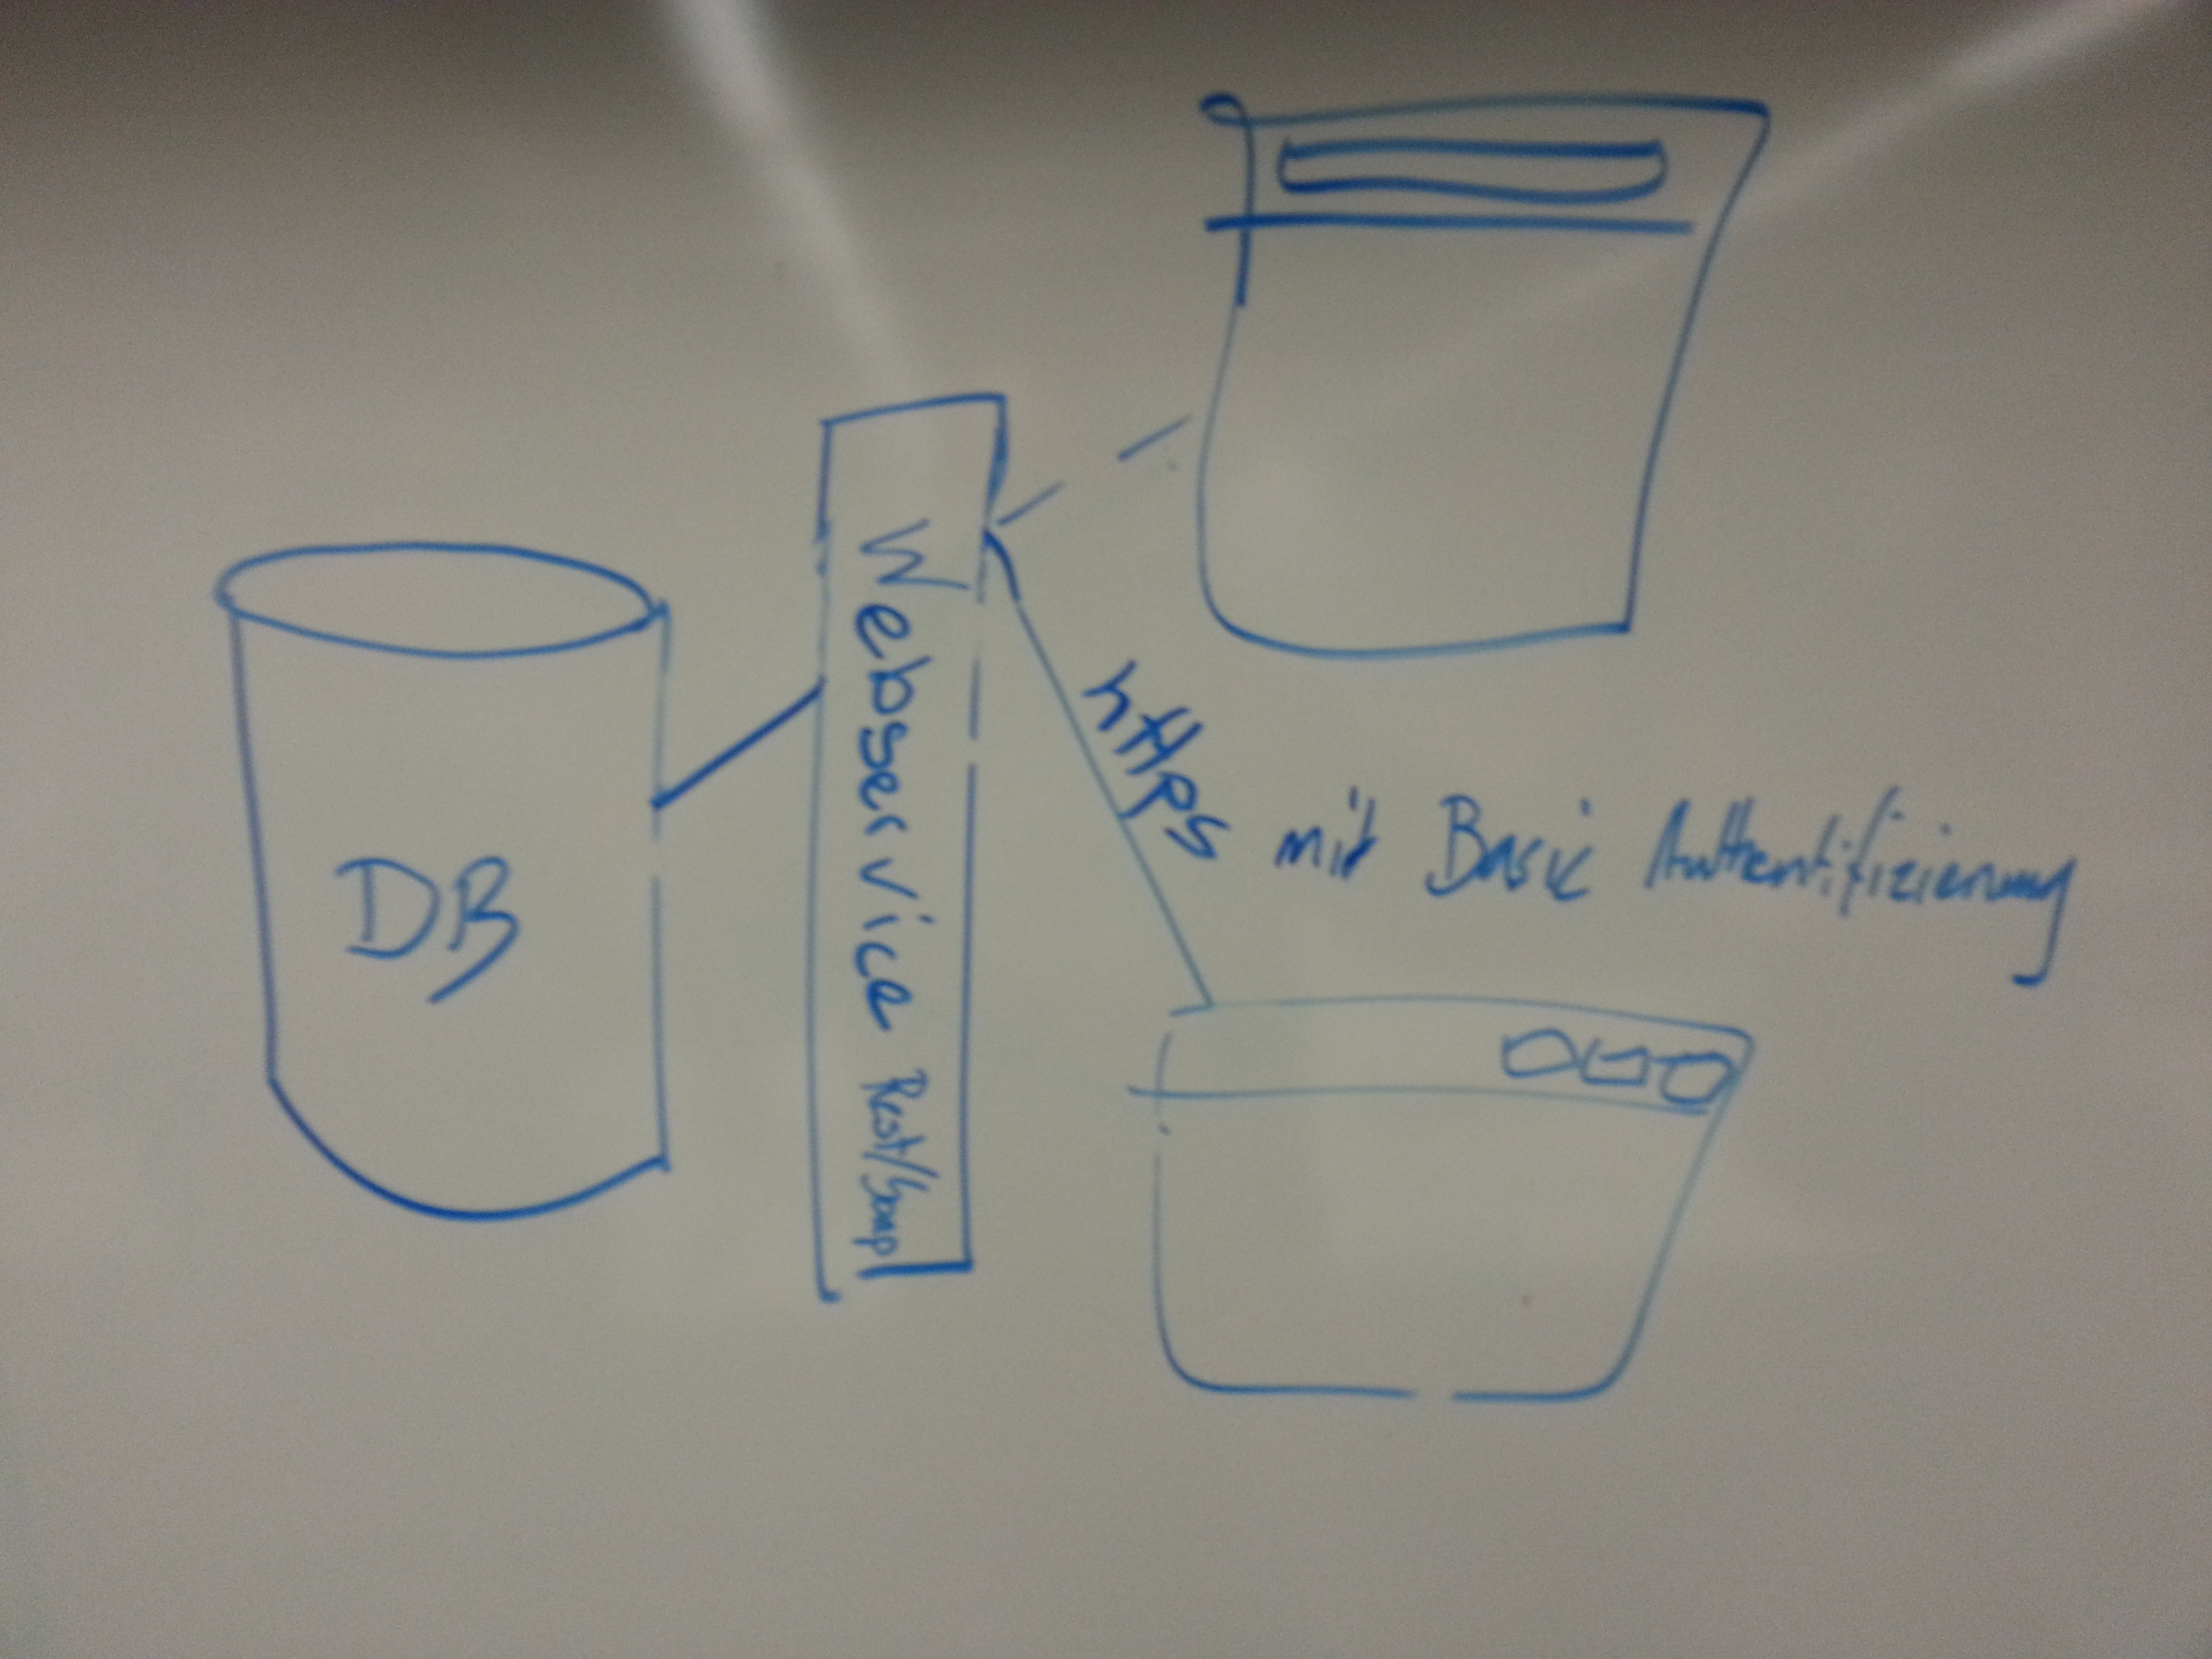 DB
Webservice Rest/Soap
https mit Basic Authentifizierung